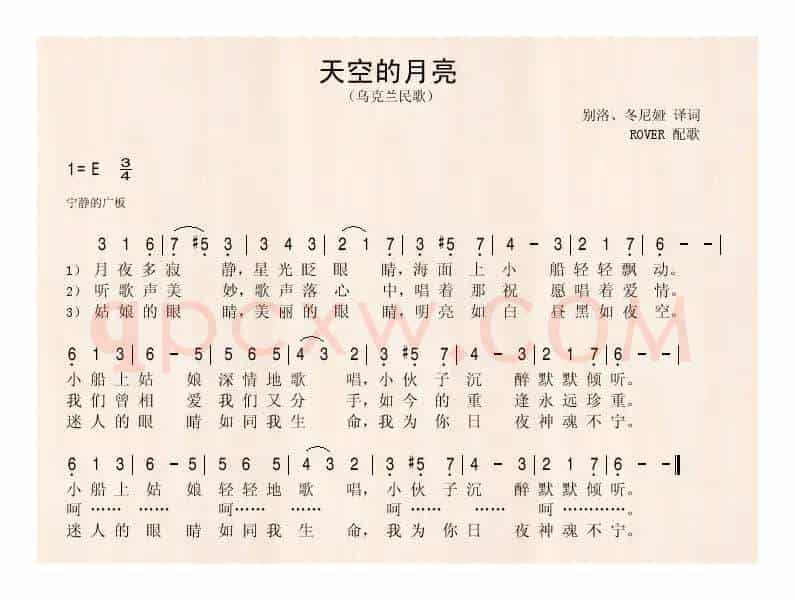 天空的月亮
（乌克兰民歌）
别洛、冬尼娅 译词
ROVER 配歌
1= E 3/4
宁静的广板
3 1 6 | 7 #5 3 | 3 4 3 | 2 1 7 | 3 #5 7 | 4 - 3 | 2 1 7 | 6 - - | - - |
1） 月 夜 多 寂 静，星 光 眨 眼 睛，海 面 上 小 船 轻 轻 飘 动。
2） 听 歌 声 美 妙，歌 声 落 心 中，唱 着 那 祝 愿 唱 着 爱 情。
3） 姑 娘 的 眼 睛，美 丽 的 眼 睛，明 亮 如 白 昼 黑 如 夜 空。
6 1 3 | 6 - 5 | 5 5 5 | 4 3 1 | 3 #5 7 | 4 - 3 | 2 1 7 | 6 - - |
小 船 上 姑 娘 深 情 地 歌 唱，小 伙 子 沉 醉 默 默 倾 听。
我 们 曾 相 爱 我 们 又 分 手，如 今 的 重 逢 永 远 珍 重。
迷 人 的 眼 睛 如 同 我 生 命，我 为 你 日 夜 神 魂 不 宁。
6 1 3 | 6 - 5 | 5 5 5 | 4 3 1 | 3 #5 7 | 4 - 3 | 2 1 7 | 6 - - ‖
小 船 上 姑 娘 轻 轻 地 歌 唱，小 伙 子 沉 醉 默 默 倾 听。
呵 …… …… 呵 …… …… 呵 …… …… 呵 …………
迷 人 的 眼 睛 如 同 我 生 命，我 为 你 日 夜 神 魂 不 宁。
qpcxw.com